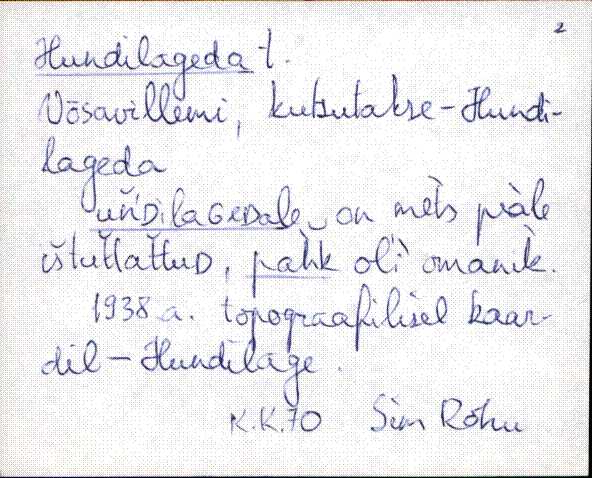 2
Hundilageda t.
Võsavillemi, kutsutakse - Hundi-
lageda
uńDilaGEDale on mèts pràle
ištuťťaťtuD, pańk ol'i omanìk.
1938 a. topograafilisel kaar-
dil - Hundilage.
K.K.70 Sim Rõhu